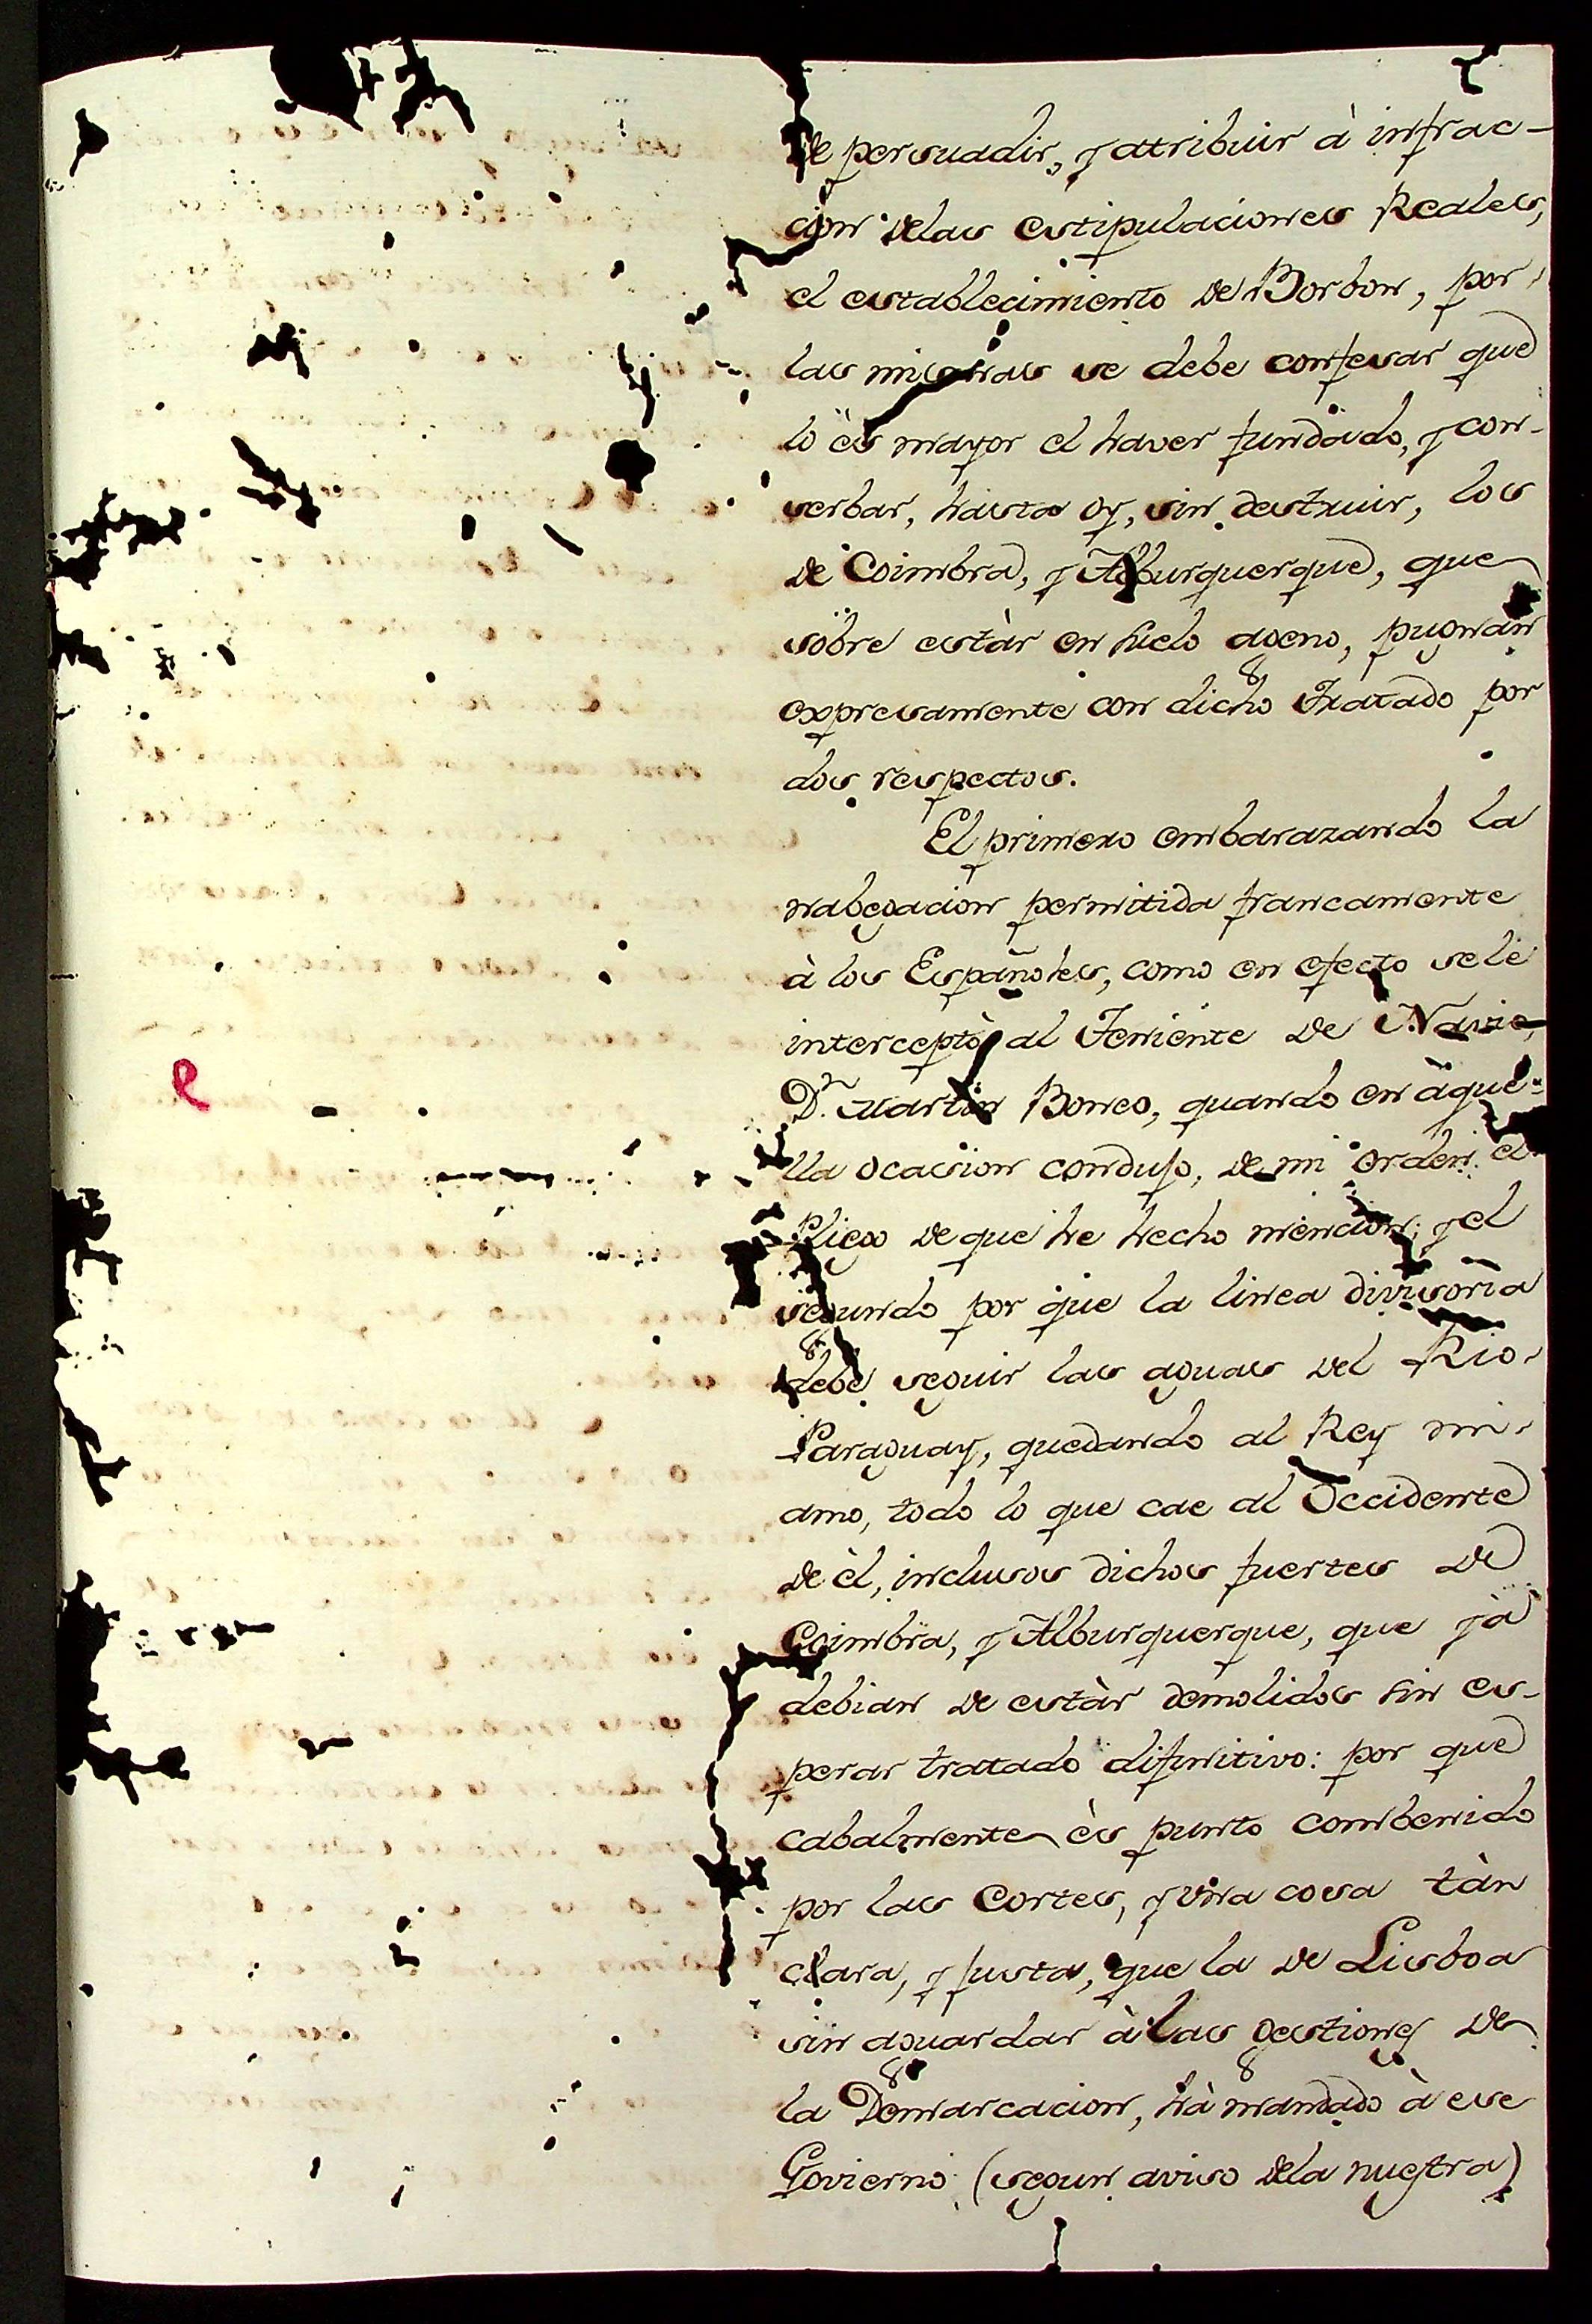 de persuadir, y atribuir à infrac-
cion delas estipulaciones Reales,
el establecimiento de Borbon, por
las mismas se debe confesar que
lo ès mayor el haver fundado, y con-
serbar, hasta oy, sin destruir, los
de Coimbra, y Alburquerque, que
sobre estàr en suelo ageno, pugnan
expresamente con dicho Tratado por
dos respectos.
El primero embarazando la
nabegacion permitida francamente
à los Españoles, como en efecto sele
interceptò al Teniente de Navio,
Dn. Martin Boneo, quando en àque-
lla ocasion condujo, de mi orden el
Pliego de que he hecho mencion; y el
segundo por que la linea divisoria
debe seguir las aguas del Rio
Paraguay, quedando al Rey mi
amo, todo lo que cae al Occidente
de èl, inclusos dichos fuertes de
Coimbra, y Alburquerque, que yà
debian de estàr demolidos sin es-
perar tratado difinitivo: por que
cabalmente ès punto combenido
por las Cortes, y vna cosa tàn
clara, y justa, que la de Lisboa
sin aguardar à las gestiones de
la Demarcacion, hà mandado à ese
Govierno (segun aviso dela nuestra)